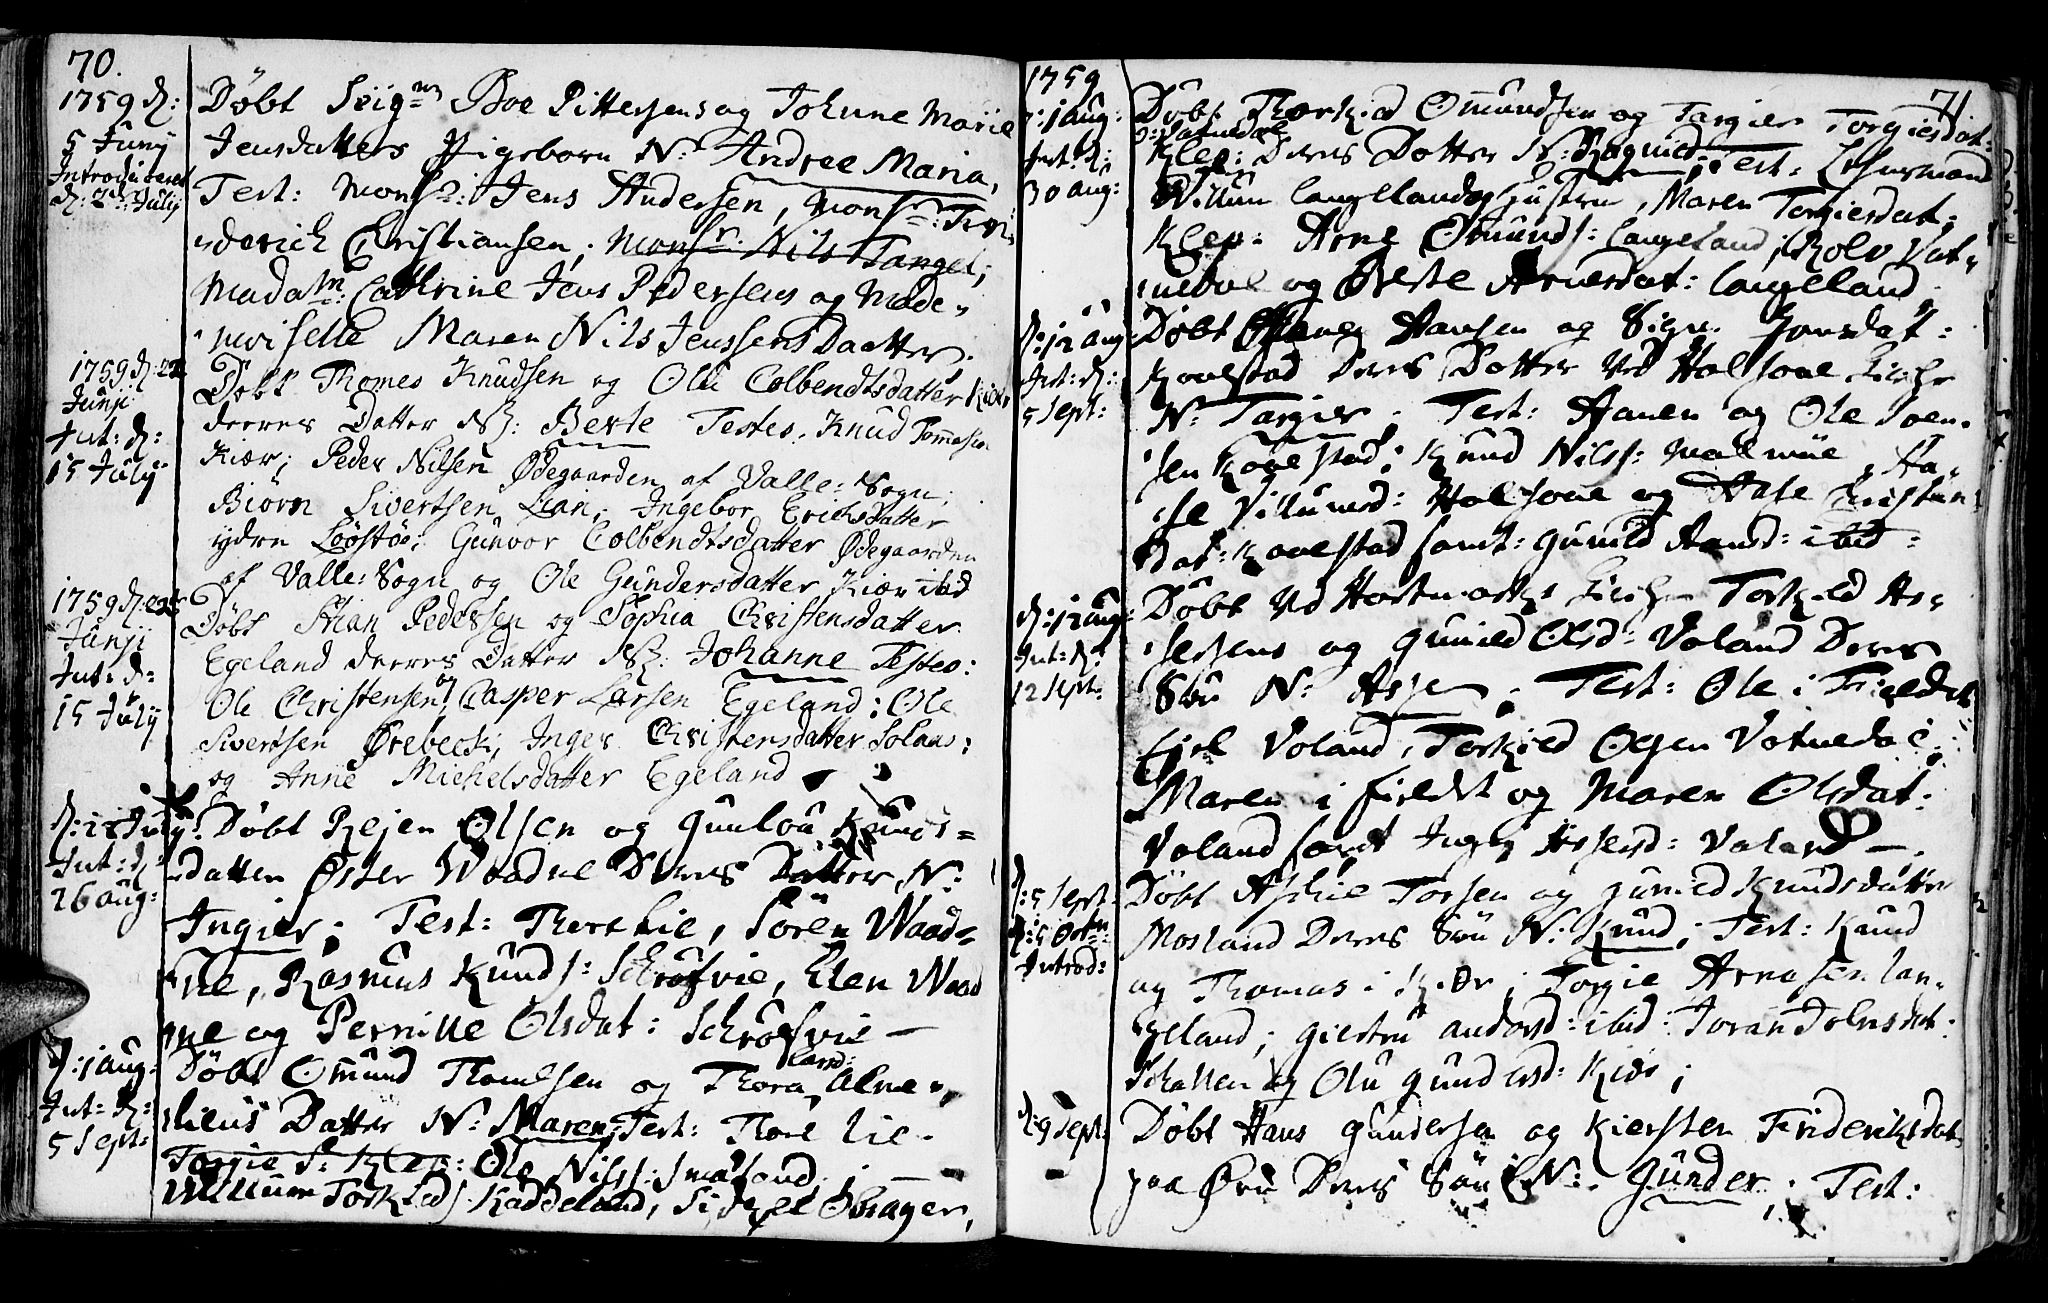 70.
1759 d:
5 Junij
Introduceret
d: 2den July
Døbt Seigr Boe Pittersens og Johnne Marie
Jensdatters Pigebarn N: Andree Maria,
Test: Monsr: Jens Andersen, Monsr: Fred
derich Christiansen, Monsr. Nils Tangel;
Madam: Cathrine Jens Pedersens og Made
moiselle Maren Nils Jenssens Daatter.
1759 d: 22
Junji
Int: d:
15 July
Døbt Thomes Knudsen og Olu Colbendtsdatter Kier
deeres Datter N: Berte Testes. Knud Tomasen
Kiær; Peder Nilsen Ødegaarden af Valle: Sogn;
Biørn Sivertsen Lian; Ingebor Erichsdatter
ydre Løøstøe; Gunvor Colbendtsdatter Ødegaarden
af Valle: Sogn og Ole Gundersdatter Kiær ibid
1759 d:
Junji
Int: d:
15 July
Døbt Stian Pedersen og Sophia Christensdatter
Egeland deeres Datter N: Johanne Testes:
Ole Christensen og Casper Larsen Egeland; Ole
Sivertsen Ørebeck; Inger Christensdatter Solaas;
og Anne Michelsdatter Egeland
d: 28 July:
Int: d:
26 aug:
Døbt Rejer Olsen og Gunlou Knuds=
datter Øster Waadne Deres Datter N:
Ingier; Test: Thorkie, Sören Waad=
ne, Rasmus Kunds: Schrøfvie, Elen Waad
ne og Pernille Olsdat: Schrøfvie —
d: 1 aug:
Int: d:
5 Sept:
Døbt Omund Thomesen og Thora
Datter N: Maren; Test: Thore Lie
Torgie S: Klep: Ole Nilss: Smaland
Willum Torkilds: Kaddeland, Sidzel Obrager,
71
1759
1 aug:
Int: d:
30 aug:
Døbt Thorkild Omundsen og Targier Torgiesdat:
Vatnedal
Klep: Deres Dotter N: Ragnild; Test:
Willum Langelands Hustru, Maren Torgiersdat:
Klep: Arne Omunds: Langeland; Rolv Vat=
nedal og Berte Arnesdat: Langeland.
d: 12 aug
Int: d:
5 Sept:
Døbt Hansen og Sign. Jonsdat:
Kovestad Deres Dotter Ved Halsaae Kirche
N: Targier. Test: Aanen og Ole Soen=
sen Kovestad; Knud Nilss: Malmüe, Aa=
se Villumsd: Halsaae og Aase Kristen
dat: Kovestad samt: Gunild Aansd: ibid:
d: 12 aug:
Int: d:
12 Sept:
Døbt Ved Hartmarks Kirche Torkild As=
sersens og Gunild Olsd: Voland Deres
Søn N: Asser; Test: Ole i Fieldet
Eivl Voland, Torkild Olsen Vatnedal,
Maren i Fieldet og Maren Olsdat:
Voland samt Inger Assersd: Voland —
d: 5 Sept.
d: 5 Octr:
Introd:
Døbt Aschie Torsen og Gunild Knudsdatter
Mosland Deres Søn N: Knud; Test: Knud
og Thomas i Kiær; Torgie Arnesen Lan=
geland; Giertru Andersd: ibid: Joran Tolnsdat:
Schallen og Olu Gundersd: Kiær;
d: 9 Sept:
Døbt Hans Gundersen og Kiersten Friderikesdat
paa Øen Deres Søn N: Gunder; Test: